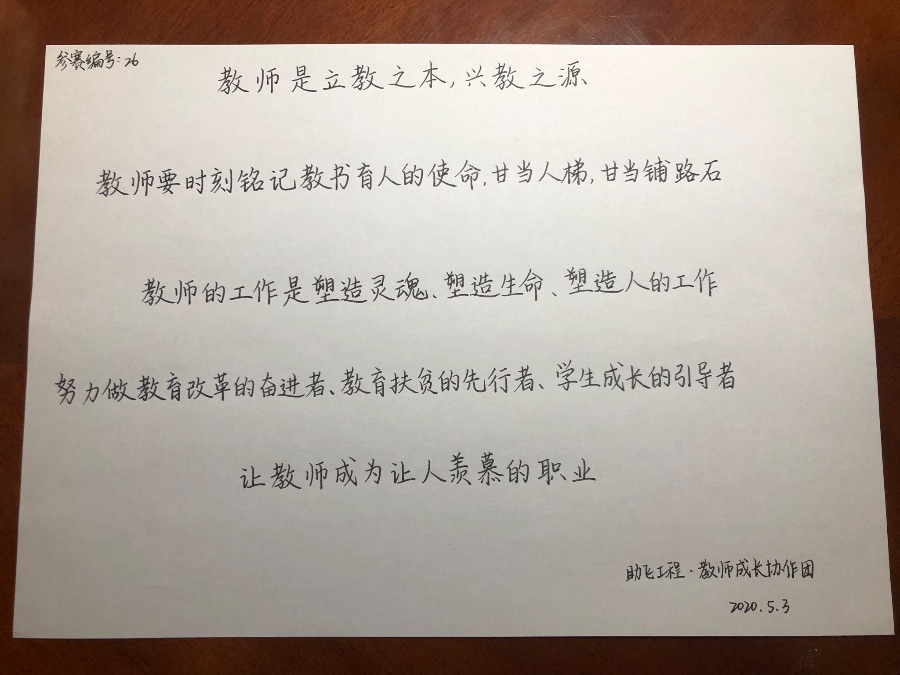 参赛编号:26
教师是立教之本,兴教之源
教师要时刻铭记教书育人的使命,甘当人梯,甘当铺路石
教师的工作是塑造灵魂、塑造生命、塑造人的工作
努力做教育改革的奋进者、教育扶贫的先行者、学生成长的引导者
让教师成为让人羡慕的职业
助飞工程·教师成长协作团
2020.5.3